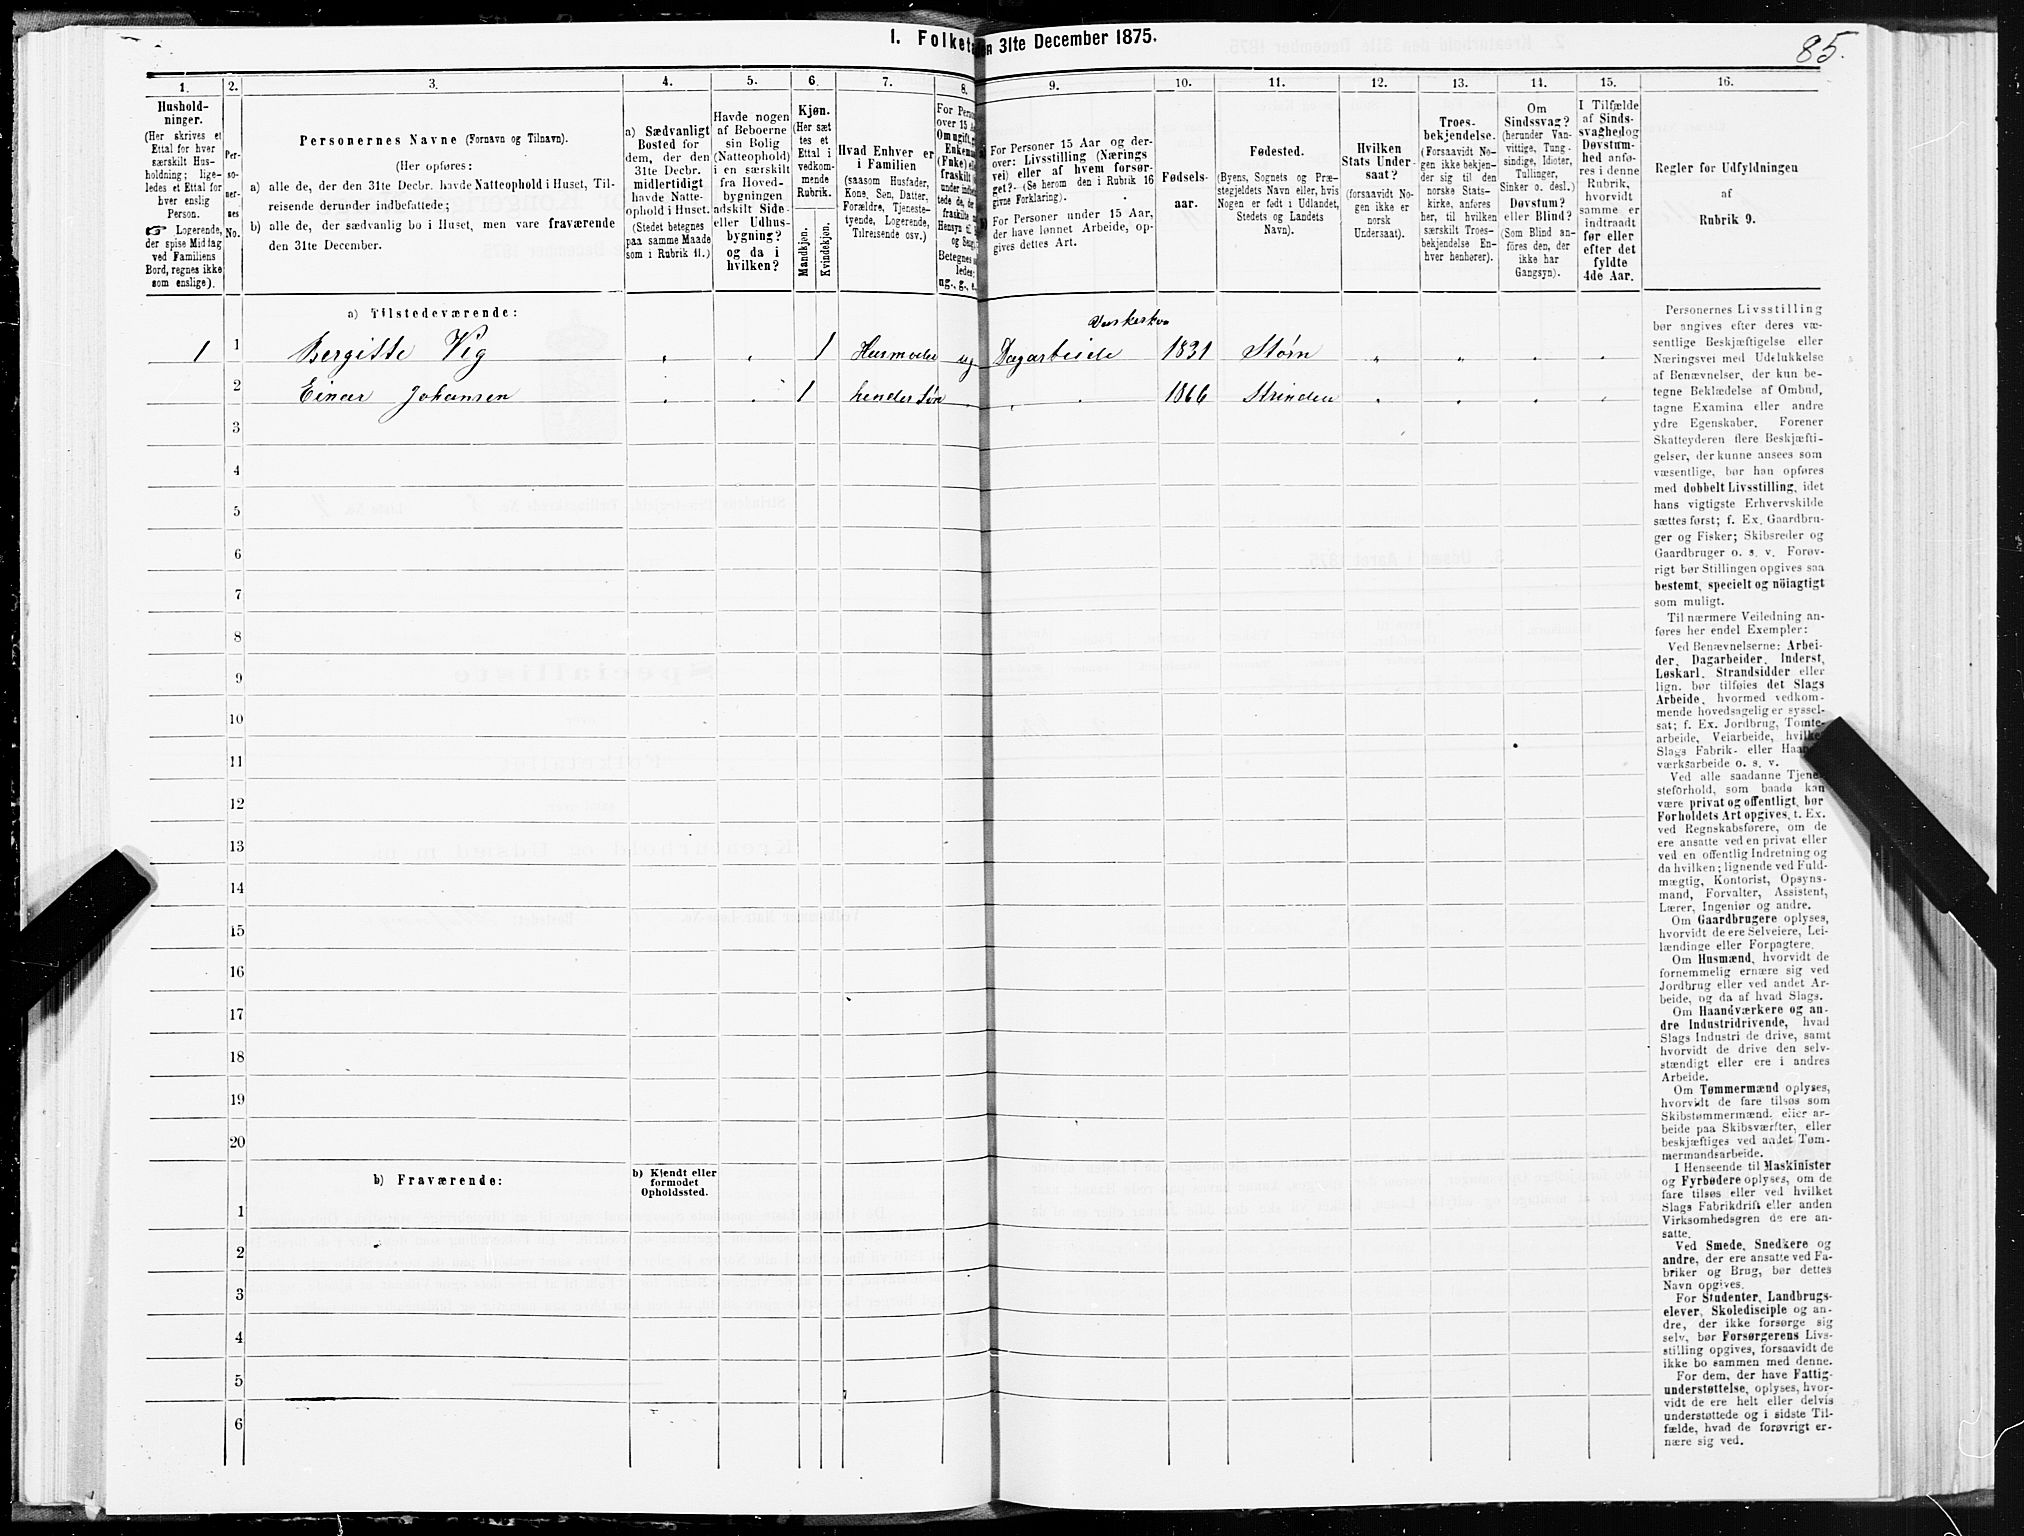 I. Folket en 31te December 1875.
85.
1.
Hushold-
ninger.
(Her skrives et
Ettal for hver
særskilt Hus-
holdning; lige-
ledes et Ettal for
hver enslig
Person.
☞ Logerende,
der spise Middag
ved Familiens
Bord, regnes ikke
som enslige).
2.
Per-
so-
ner-
nes
No.
3.
Personernes Navne (Fornavn og Tilnavn).
(Her opføres:
a) alle de, der den 31te Decbr. havde Natteophold i Huset, Til-
reisende derunder indbefattede;
b) alle de, der sædvanlig bo i Huset, men vare fraværende
den 31te December.
4.
a) Sædvanligt
Bosted for
dem, der den
31te Decbr.
midlertidigt
havde Natte-
ophold i Huset.
(Stedet betegnes
paa samme Maade
som i Rubrik 11.)
5.
Havde nogen
af Beboerne
sin Bolig
(Natteophold)
i en særskilt
fra Hoved-
bygningen
adskilt Side-
eller Udhus-
bygning?
og da i
hvilken?
6.
Kjøn.
(Her sæt
tes et
Ettal i
vedkom-
mende
Rubrik.
Mandkjøn.
Kvindekjøn.
7.
Hvad Enhver er
i Familien
(saasom Husfader,
Kone, Søn, Datter,
Forældre, Tjeneste-
tyende, Logerende,
Tilreisende osv.)
8.
For Perso
over 15 A
Om ugift, g
Enkem
(Enke) e
fraskilt
under indbe
tede de, de
fraskilte
Hensyn til
og Seng.
Betegnes
ledes:
ug., g., e.
9.
For Personer 15 Aar og der-
over: Livsstilling (Nærings
vei) eller af hvem forsør-
get? (Se herom den i Rubrik 16
givne Forklaring).
For Personer under 15 Aar,
der have lønnet Arbeide, op-
gives dettes Art.
10.
Fødsels-
aar.
11.
Fødested.
(Byens, Sognets og Præ-
stegjeldets Navn eller, hvis
Nogen er født i Udlandet,
Stedets og Landets
Navn).
12.
Hvilken
Stats Under-
saat?
(forsaavidt No-
gen ikke er
norsk
Undersaat).
13.
Troes-
bekjendelse.
(Forsaavidt No-
gen ikke bekjen-
der sig til den
norske Stats-
kirke, anføres
her, til hvilken
særskilt Troes-
bekjendelse En-
hver henhører).
14.
Om
Sindssvag?
(herunder Van-
vittige, Tung-
sindige, Idioter,
Tullinger,
Sinker o. desl.)
Døvstum?
eller Blind?
(Som Blind an-
føres den, der
ikke har
Gangsyn).
15.
I Tilfælde
af Sinds-
svaghed og
Døvstum-
hed anfø-
res i denne
Rubrik,
hvorvidt
samme er
indtraadt
før eller
efter det
fyldte
4de Aar.
16.
Regler for Udfyldningen
af
Rubrik 9.
a) Tilstedeværende:
Vaskerko
1 1 Bergitte Vig „ „ 1 Husmoder ug Dagarbeide 1831 Støren „ „ „ „
2 Einar Johansen „ „ 1 hendes Søn „ „ „ 1866 Strinden „ „ „ „
3
4
5
6
7
8
9
10
11
12
13
14
15
16
17
18
19
20
b) Fraværende:
b) Kjendt eller
formodet
Opholdssted.
1
2
3
4
5
6
Personernes Livsstilling
bør angives efter deres væ-
sentlige Beskjæftigelse eller
Næringsvei med Udelukkelse
af Benævnelser, der kun be-
tegne Beklædelse af Ombud,
tagne Examina eller andre
ydre Egenskaber. Forener
Skatteyderen flere Beskjæfti-
gelser, der kunne ansees som
væsentlige, bør han opføres
med dobbelt Livsstilling, idet
hans vigtigste Erhvervskilde
sættes først; f. Ex. Gaardbru-
ger og Fisker; Skibsreder og
Gaardbruger o. s. v. Forøv-
rigt bør Stillingen opgives saa
bestemt, specielt og nöiagtigt
som muligt.
Til nærmere Veiledning an-
føres her endel Exempler:
Ved Benævnelserne: Arbei-
der, Dagarbeider, Inderst,
Løskarl, Strandsidder eller
lign. bør tilføies det Slags
Arbeide, hvormed vedkom-
mende hovedsagelig er syssel-
sat; f. Ex. Jordbrug, Tomte-
arbeide, Veiarbeide, hvilket
Slags Fabrik- eller Haand-
værksarbeide o. s. v.
Ved alle saadanne Tjene-
steforhold, som baade kan
være privat og offentligt, bør
Forholdets Art opgives, t. Ex.
ved Regnskabsførere, om de
ere ansatte ved en privat eller
ved en offentlig Indretning og
da hvilken; lignende ved Fuld-
mægtig, Kontorist, Opsyns-
mand, Forvalter, Assistent,
Lærer, Ingeniør og andre.
Om Gaardbrugere oplyses,
hvorvidt de ere Selveiere, Lei-
lændinge eller Forpagtere.
Om Husmænd, hvorvidt de
fornemmelig ernære sig ved
Jordbrug eller ved andet Ar-
beide, og da af hvad Slags.
Om Haandværkere og an-
dre Industridrivende, hvad
Slags Industri de drive, samt
hvorvidt de drive den selv-
stændigt eller ere i andres
Arbeide.
Om Tømmermænd oplyses,
hvorvidt de fare tilsøs som
Skibstømmermænd, eller ar-
beide paa Skibsværfter, eller
beskjæftiges ved andet Tøm-
mermandsarbeide.
I Henseende til Maskinister
og Fyrbødere oplyses, om de
fare tilsøs eller ved hvilket
Slags Fabrikdrift eller anden
Virksomhedsgren de ere an-
satte.
Ved Smede, Snedkere og
andre, der ere ansatte ved Fa-
briker og Brug, bør dettes
Navn opgives.
For Studenter, Landbrugs-
elever, Skoledisciple og an-
dre, der ikke forsørge sig
selv, bør Forsørgerens Livs-
stilling opgives, forsaavidt de
ikke bo sammen med denne.
For dem, der have Fattig-
understøttelse, oplyses, hvor-
vidt de ere helt eller delvis
understøttede og i sidste Til-
fælde, hvad de forøvrigt er-
nære sig ved.